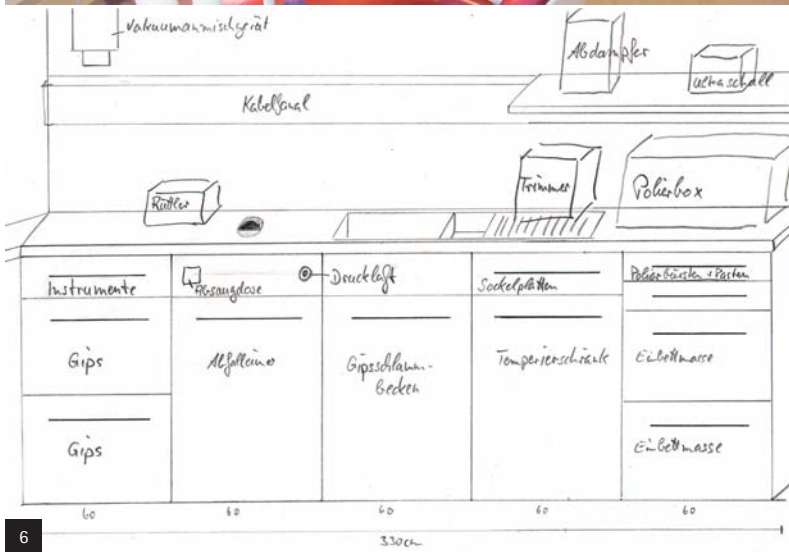 Vakuumanmischgerät
Abdampfer
Ultraschall
Kabelkanal
Rüttler
Trimmer
Polierbox
Instrumente
Absaugdose
Druckluft
Sockelplatten
Polierbürsten + Pasten
Gips
Abfalleimer
Gipsschlamm-
becken
Temperierschrank
Einbettmasse
Gips
Einbettmasse
60
60
60
60
60
330cm
6